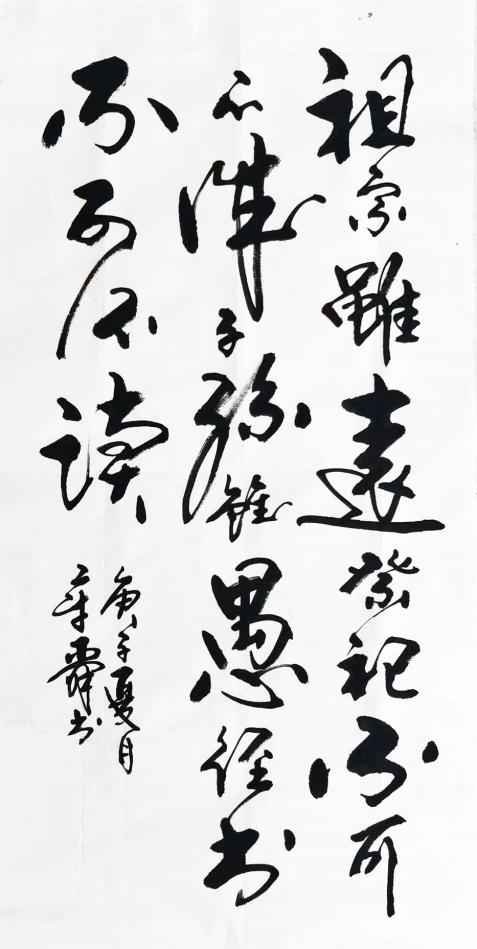 祖宗雖遠祭祀不可
不誠子孫雖愚經書
不可不讀
庚子夏月
舜书